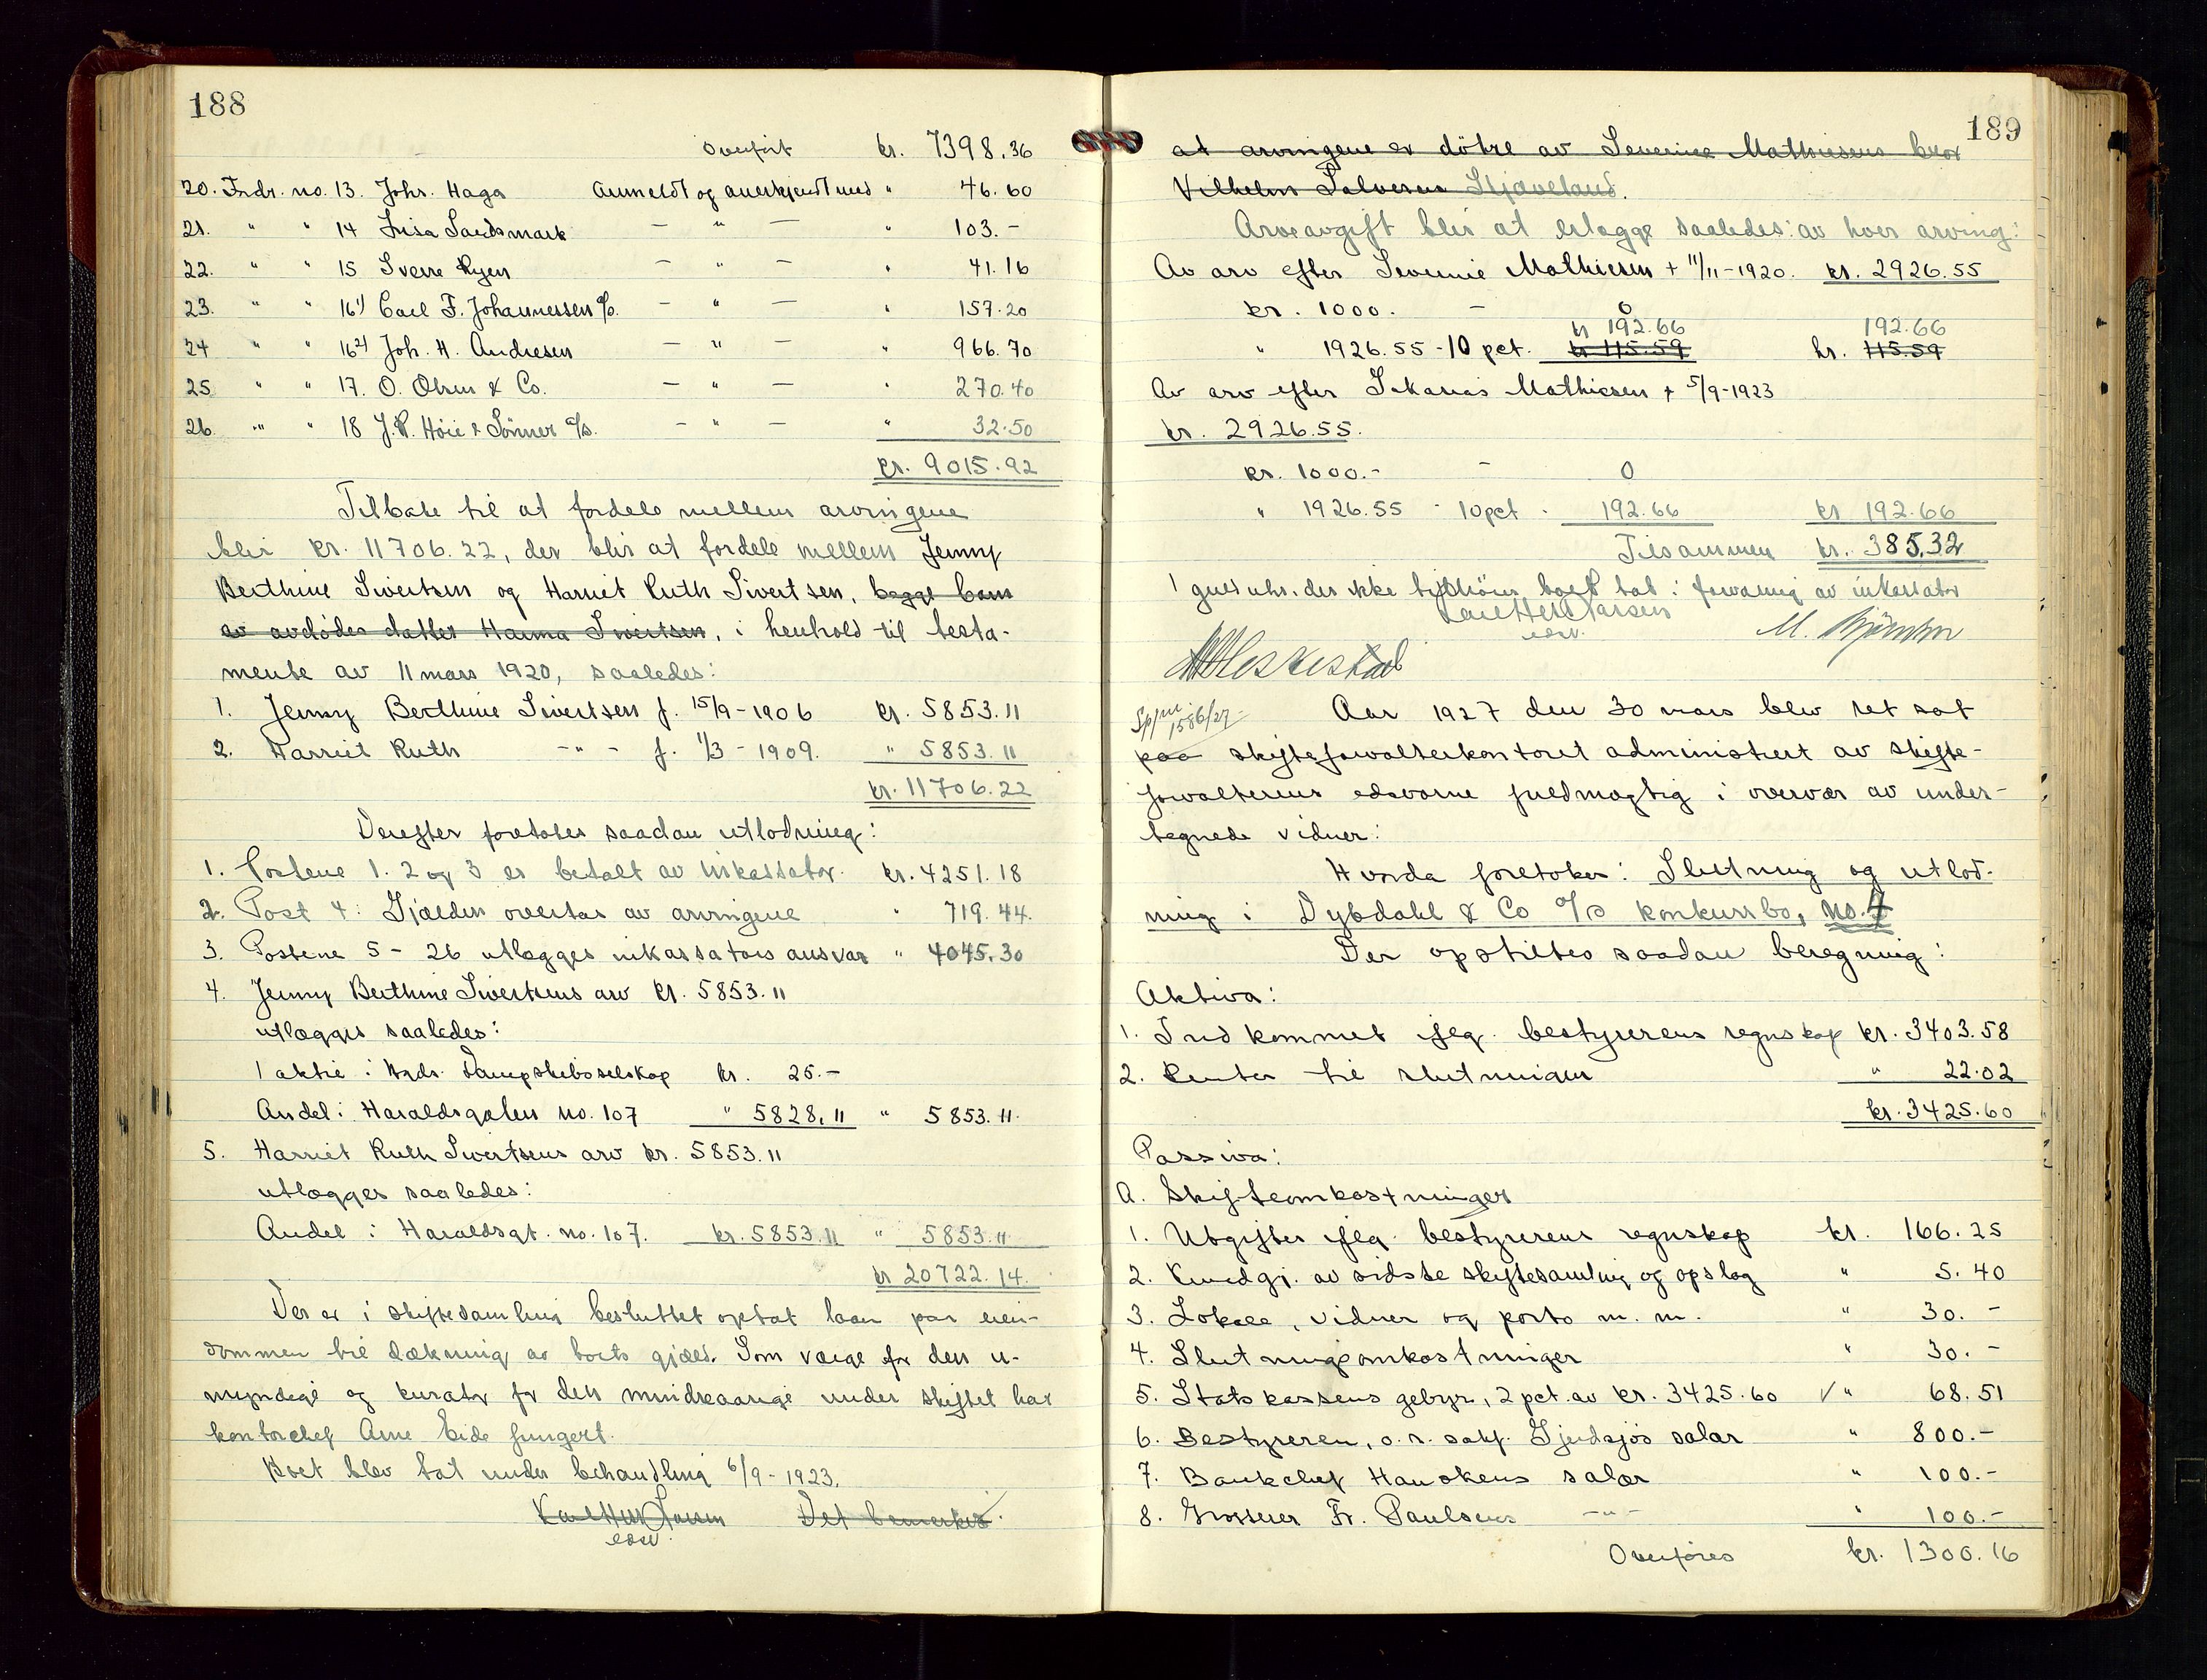 188
Overført kr. 7398.36
20. Fndr. no. 13. Johs. Haga Anmeldt og anerkjendt med " 46.60
21. " " 14 Lisa Sandsmark — " — " 103.-
22. " " 15 Sverre Ryen — " — " 41.16
23. " " 16¹) Carl F. Johannessen a/s. — " — " 157.20
24 " " 16²) Joh. H. Andresen — " — " 966.70
25. " " 17. O. Olsen & Co. — " — " 270.40
26. " " 18 J.R. Höie & Sönner a/s. — " — " 32.50
kr. 9015.92
Tilbake til at fordele mellem arvingene
blir kr. 11706.22, der blir at fordele mellem Jenny
Berthine Sivertsen og Harriet Ruth Sivertsen, begge barn
av avdødes datter Hanna Sivertsen, i henhold til testa-
mente av 11 mars 1920, saaledes:
1. Jenny Berthine Sivertsen f. 15/9-1906 kr. 5853.11
2. Harriet Ruth -"- f. 1/3-1909. " 5853.11
kr. 11706.22
Derefter foretokes saadan utlodning:
1. Postene 1. 2 og 3 er betalt av inkassator. kr. 4251.18
2. Post 4: Gjælden overtas av arvingene " 719.44.
3. Postene 5 - 26 utlægges inkassators ansvar " 4045.30
4. Jenny Berthine Sivertsens arv kr. 5853.11
utlægges saaledes:
1 aktie i Hgds. Dampskibsselskap kr. 25.-
Andel i Haraldsgaten no. 107 " 5828.11 " 5853.11.
5. Harriet Ruth Sivertsens arv kr. 5853.11
utlægges saaledes:
Andel i Haraldsgt. no. 107. kr. 5853.11 " 5853.11
kr 20722.14.
Der er i skiftesamling besluttet optat laan paa eien-
dommen til dækning av boets gjæld. Som værge for den u-
myndige og kurator for den mindreaarige under skiftet har
kontorchef Arne Eide fungert.
Boet blev tat under behandling 6/9-1923.
Karl Larsen Det bemerkes
edsv.
189
at arvingene er døtre av Severine Mathiesens bror
Vilhelm Salvesen Stjæveland.
Arveavgift blir at erlægge saaledes: av hver arving:
Av arv efter Severine Mathiesen + 11/11-1920. kr. 2926.55
kr. 1000. - 0
kr 192.66 192.66
" 1926.55 - 10 pct. kr 115.59 kr. 115.59
Av arv efter Sakarias Mathiesen + 5/9-1923
kr. 2926.55.
kr. 1000.- - 0
" 1926.55 - 10 pct. 192.66 kr 192.66
Tilsammen kr. 385.32
1 gulduhr, der ikke tilhörer boet tat i forvaring av inkassator
Larsen
edsv.
Aar 1927 den 30 mars blev ret sat
1586/27
paa skifteforvalterkontoret administrert av skifte-
forvalterens edsvorne fuldmægtig i overvær av under-
tegnede vidner:
Hvorda foretokes: Slutning og utlod-
ning i Dybdahl & Co a/s konkursbo, no. 4
Der opstiltes saadan beregning:
Aktiva:
1. Indkommet iflg. bestyrerens regnskap kr. 3403.58
2. Renter til slutningen " 22.02
kr. 3425.60
Passiva:
A. Skifteomkostninger
1. Utgifter iflg. bestyrerens regnskap kr. 166.25
2. Kundgj. av sidste skiftesamling og opslag " 5.40
3. Lokale, vidner og porto m. m. " 30.-
4. Slutningsomkostninger " 30.-
5. Statskassens gebyr, 2 pct. av kr. 3425.60 √ " 68.51
6. Bestyreren, o. r. sakf. Gjendsjös salær " 800.-
7. Bankchef Hauskens salær " 100.-
8. Grosserer Fr. Paulsens -"- " 100.-
Overføres kr. 1300.16